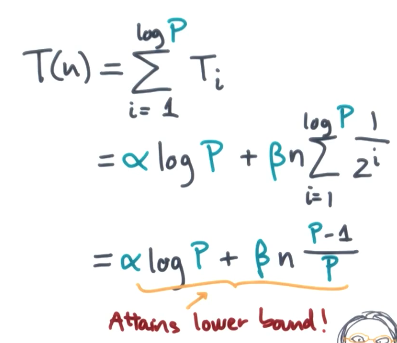 T(n) = ∑_{i=1}^{log P} T_i
= α log P + β n ∑_{i=1}^{log P} 1/2^i
= α log P + β n (P-1)/P
Attains lower bound!